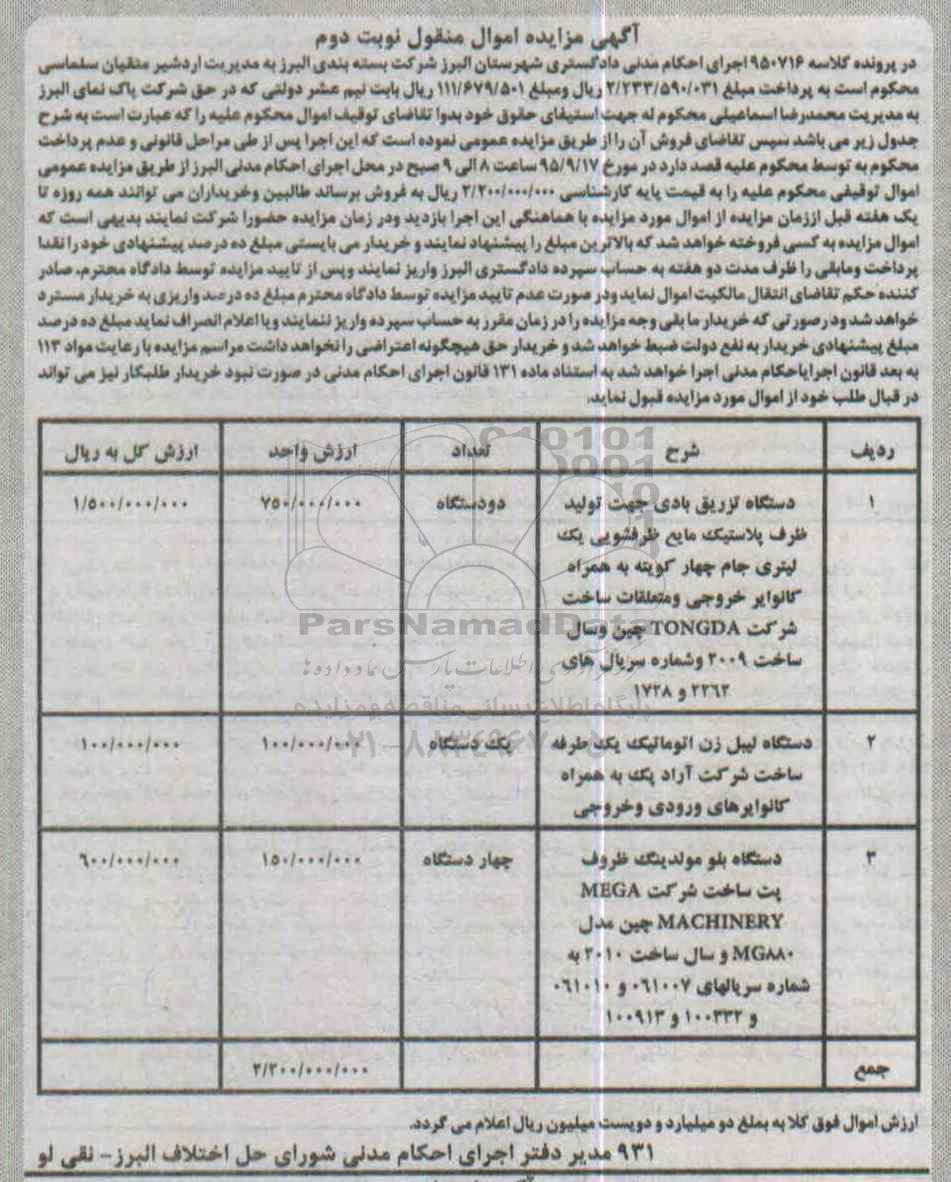 آگهی مزایده اموال منقول نوبت دوم
در پرونده کلاسه ۹۵۰۷۱۶ اجرای احکام مدنی دادگستری شهرستان البرز شرکت بسته بندی البرز به مدیریت اردشیر متقیان سلماسی
محکوم است به پرداخت مبلغ ۲/۲۳۳/۵۹۰/۰۳۱ ریال ومبلغ ۱۱۱/۶۷۹/۵۰۱ ریال بابت نیم عشر دولتی که در حق شرکت پاک نمای البرز
به مدیریت محمدرضا اسماعیلی محکوم له جهت استیفای حقوق خود بدوا تقاضای توقیف اموال محکوم علیه را که عبارت است به شرح
جدول زیر می باشد سپس تقاضای فروش آن را از طریق مزایده عمومی نموده است که این اجرا پس از طی مراحل قانونی و عدم پرداخت
محکوم به توسط محکوم علیه قصد دارد در مورخ ۹۵/۹/۱۷ ساعت ۸ الی ۹ صبح در محل اجرای احکام مدنی البرز از طریق مزایده عمومی
اموال توقیفی محکوم علیه را به قیمت پایه کارشناسی ۲/۲۰۰/۰۰۰/۰۰۰ ریال به فروش برساند طالبین وخریداران می توانند همه روزه تا
یک هفته قبل اززمان مزایده از اموال مورد مزایده با هماهنگی این اجرا بازدید ودر زمان مزایده حضورا شرکت نمایند بدیهی است که
اموال مزایده به کسی فروخته خواهد شد که بالاترین مبلغ را پیشنهاد نمایند و خریدار می بایستی مبلغ ده درصد پیشنهادی خود را نقدا
پرداخت ومابقی را ظرف مدت دو هفته به حساب سپرده دادگستری البرز واریز نمایند وپس از تایید مزایده توسط دادگاه محترم، صادر
کننده حکم تقاضای انتقال مالکیت اموال نماید ودر صورت عدم تایید مزایده توسط دادگاه محترم مبلغ ده درصد واریزی به خریدار مسترد
خواهد شد ودرصورتی که خریدار ما بقی وجه مزایده را در زمان مقرر به حساب سپرده واریز ننمایند ویا اعلام انصراف نماید مبلغ ده درصد
مبلغ پیشنهادی خریدار به نفع دولت ضبط خواهد شد و خریدار حق هیچگونه اعتراضی را نخواهد داشت مراسم مزایده با رعایت مواد ۱۱۳
به بعد قانون اجرایاحکام مدنی اجرا خواهد شد به استناد ماده ۱۳۱ قانون اجرای احکام مدنی در صورت نبود خریدار طلبکار نیز می تواند
در قبال طلب خود از اموال مورد مزایده قبول نماید.
ردیف شرح تعداد ارزش واحد ارزش کل به ریال
۱ دستگاه تزریق بادی جهت تولید دودستگاه ۷۵۰/۰۰۰/۰۰۰ ۱/۵۰۰/۰۰۰/۰۰۰
ظرف پلاستیک مایع ظرفشویی یک
لیتری جام چهار کویته به همراه
کانوایر خروجی ومتعلقات ساخت
شرکت TONGDA چین وسال
ساخت ۲۰۰۹ وشماره سریال های
۲۲۶۲ و ۱۷۲۸
۲ دستگاه لیبل زن اتوماتیک یک طرفه یک دستگاه ۱۰۰/۰۰۰/۰۰۰ ۱۰۰/۰۰۰/۰۰۰
ساخت شرکت آراد پک به همراه
کانوایرهای ورودی وخروجی
۳ دستگاه بلو مولدینگ ظروف چهار دستگاه ۱۵۰/۰۰۰/۰۰۰ ۶۰۰/۰۰۰/۰۰۰
پت ساخت شرکت MEGA
MACHINERY چین مدل
MG۸۸۰ و سال ساخت ۲۰۱۰ به
شماره سریالهای ۰۶۱۰۰۷ و ۰۶۱۰۱۰
و ۱۰۰۳۳۲ و ۱۰۰۹۱۳
جمع ۲/۲۰۰/۰۰۰/۰۰۰
ارزش اموال فوق کلا به بمبلغ دو میلیارد و دویست میلیون ریال اعلام می گردد.
۹۳۱ مدیر دفتر اجرای احکام مدنی شورای حل اختلاف البرز - نقی لو
ParsNamadData